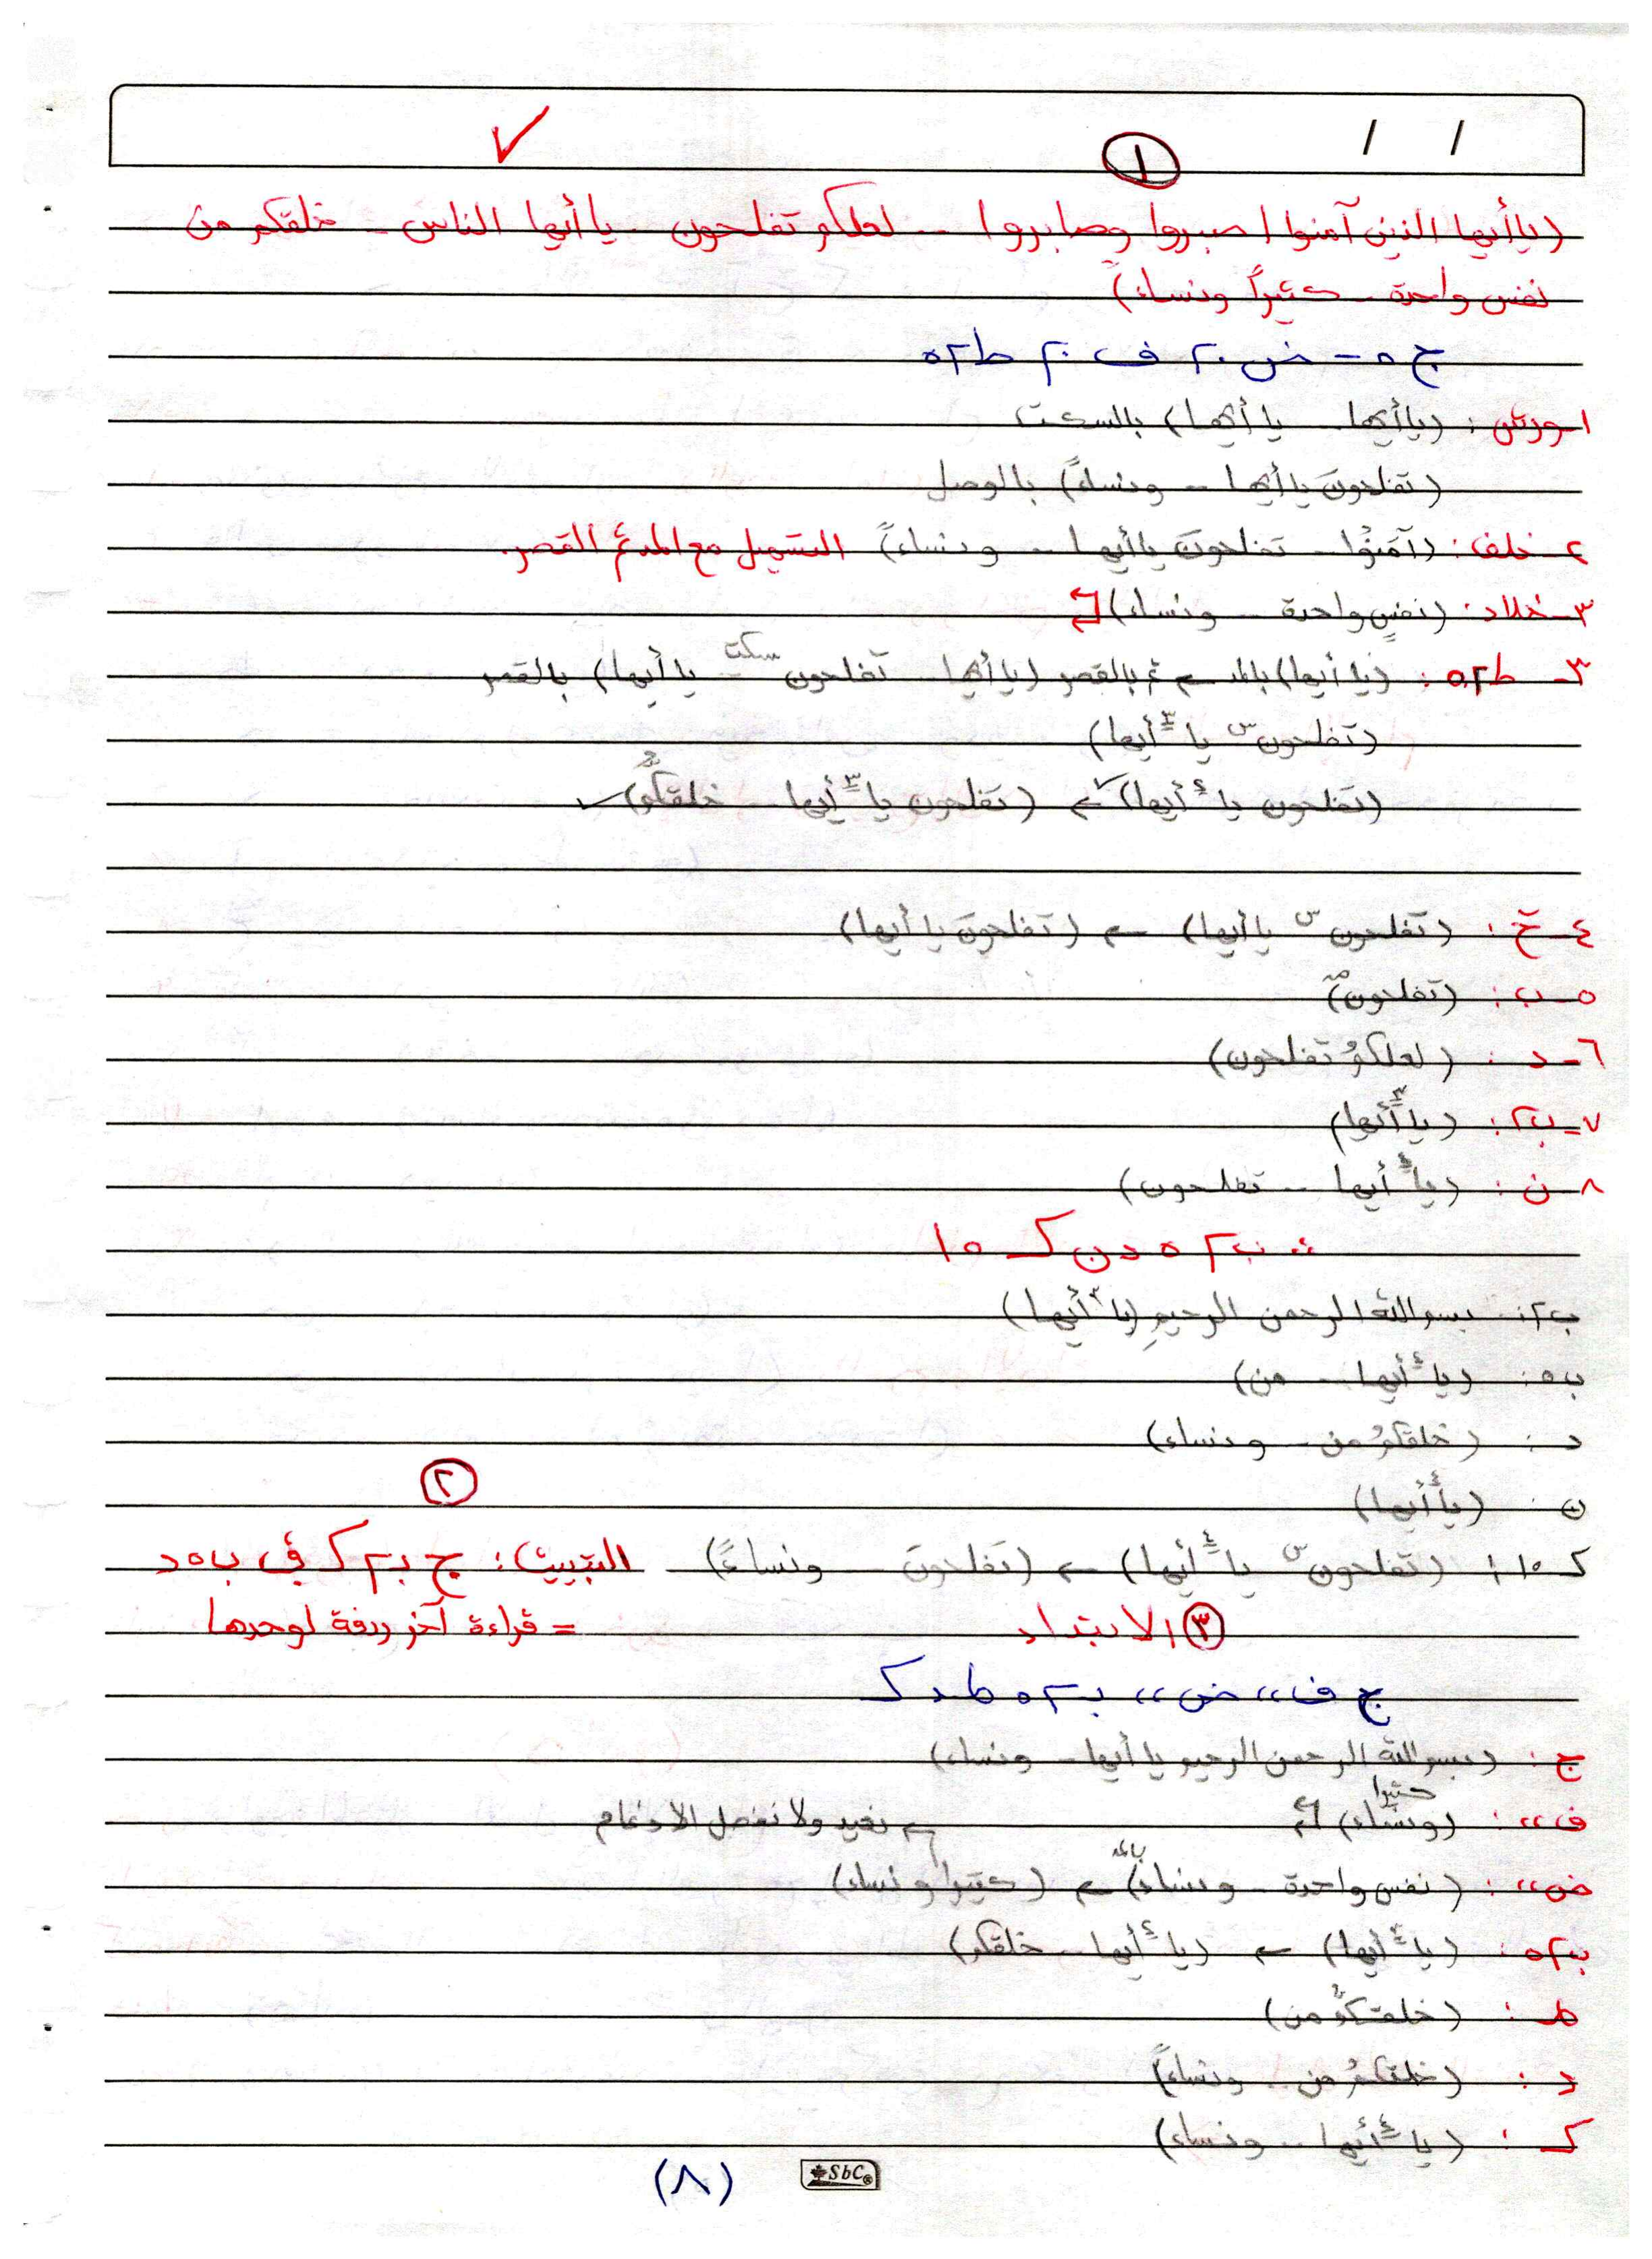 / /
①
✓
(يا أيها الذين آمنوا اصبروا وصابروا -- لعلكم تفلحون يا أيها الناس - خلقكم من
نفس واحدة - كثيراً ونساءً)
ج ٥ - ض ٢٠ ف ٢٠ ط ٥٢
١- ورش : (يا أيها - يا أيها) بالسكت
(تفلحونَ يا أيها -- ونساءً) بالوصل
٢- خلف : (آمَنُوا - تفلحونَ يا أيها -- ونساءً) التسهيل مع المد ثم القصر.
٣- خلاد : (نفسٍ واحدة -- ونساء)
٣- ط٥٢ : (يا أيها) بالمد ← ثم بالقصر (يا أيها - تفلحون سكت يا أيها) بالقصر
(تفلحون س يا ٣ أيها)
(تفلحون يا ٤ أيها) ← (تفلحون يا ٣ أيها - خلقكم)
٤- خ : (تفلحون س يا أيها) ← (تفلحونَ يا أيها)
٥- ب : (تفلحون)
٦- د : (لعلكمُ تفلحون)
٧- ب٢ : (يا ٣ أيها)
٨- ن : (يا ٤ أيها -- تفلحون)
ب٢ ٥ د ن ك ١٥
ب٢ : بسم الله الرحمن الرحيمِ (يا أيها)
ب٥ : (يا ٤ أيها -- من)
د : (خلقكمُ من - ونساء)
②
ن : (يا ٤ أيها)
ك ١٥ : (تفلحون س يا ٤ أيها) ← (تفلحونَ - ونساءً) - التبييت : ج ب٢ ك في ب٥ د
③ الابتداء = قراءة آخر ردفة لوحدها
ج ف ،، ض ،، ب٥٢ ط د ك
ج : (بسم الله الرحمن الرحيم يا أيها - ونساء)
ف ،، : (كثيرا ونساء) ← نعيد ولا نفصل الإدغام
ض ،، : (نفس واحدة - ونساء) بالمد ← (كثيرا ونساء)
ب٥٢ : (يا أيها) ← (يا ٤ أيها - خلقكم)
ط : (خلقكم من)
د : (خلقكمُ من - ونساءً)
ك : (يا ٤ أيها -- ونساء)
(٨)
SbC®